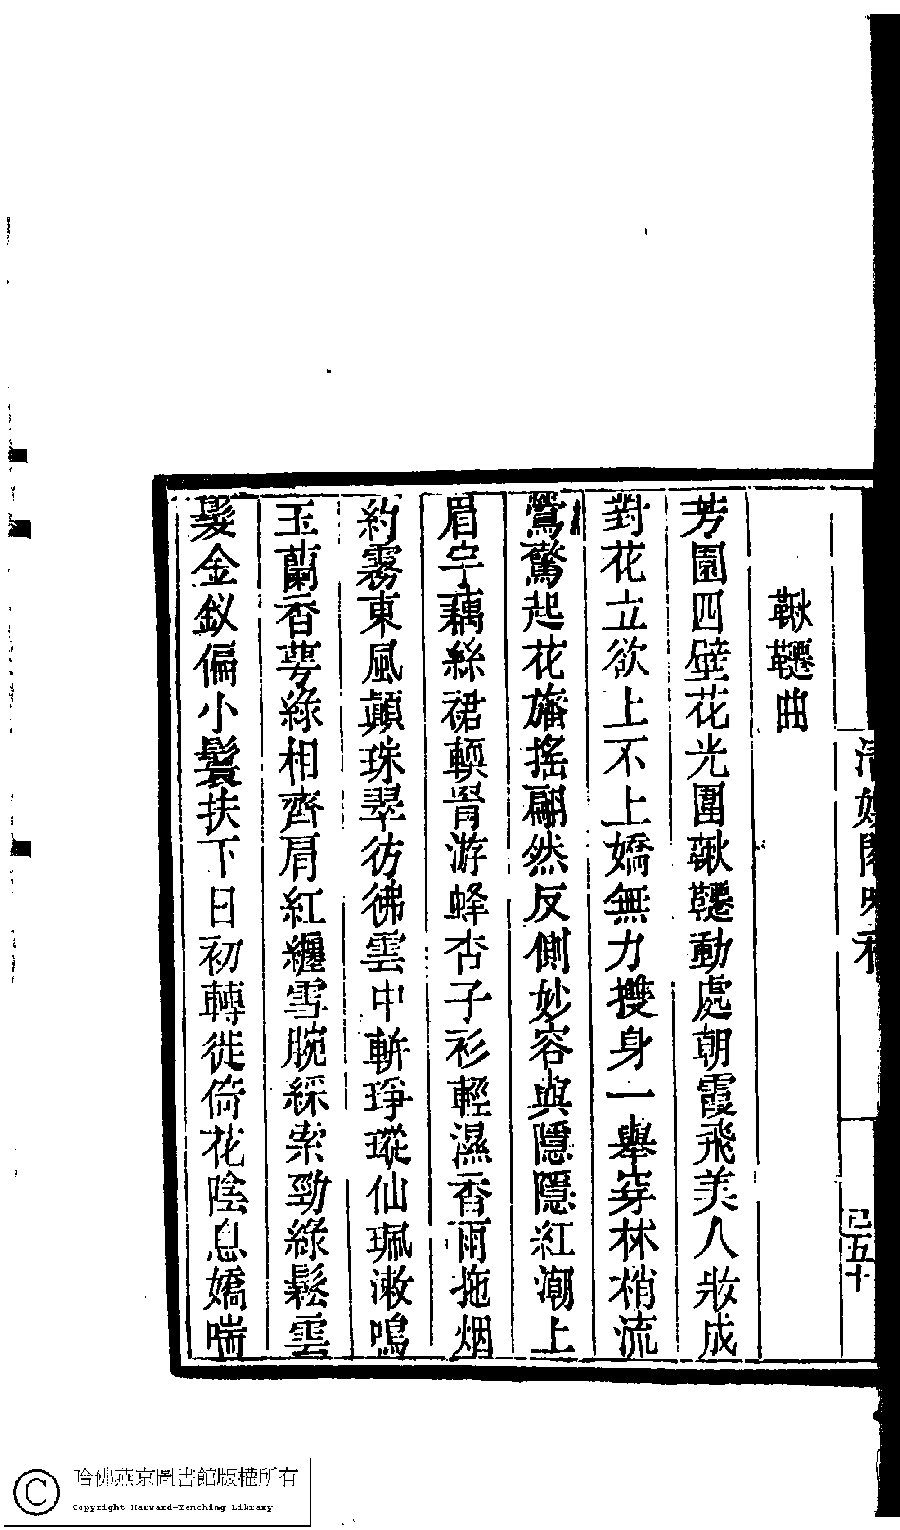 鞦韆曲
芳園四壁花光圍鞦韆動處朝霞飛美人妝成
對花立欲上不上嬌無力擭身一舉穿林梢流
鶯驚起花旛搖翩然反側妙容與隱隱紅潮上
眉宇藕絲裙輭罥游蜂杏子衫輕濕香雨拖烟
約霧東風顛珠翠彷彿雲中軿琤瑽仙珮漱鳴
玉蘭香萼綠相齊肩紅纏雪腕綵索勁綠鬆雲
髮金釵偏小鬟扶下日初轉徙倚花陰息嬌喘
五十
哈佛燕京圖書館版權所有
Copyright Harvard-Yenching Library